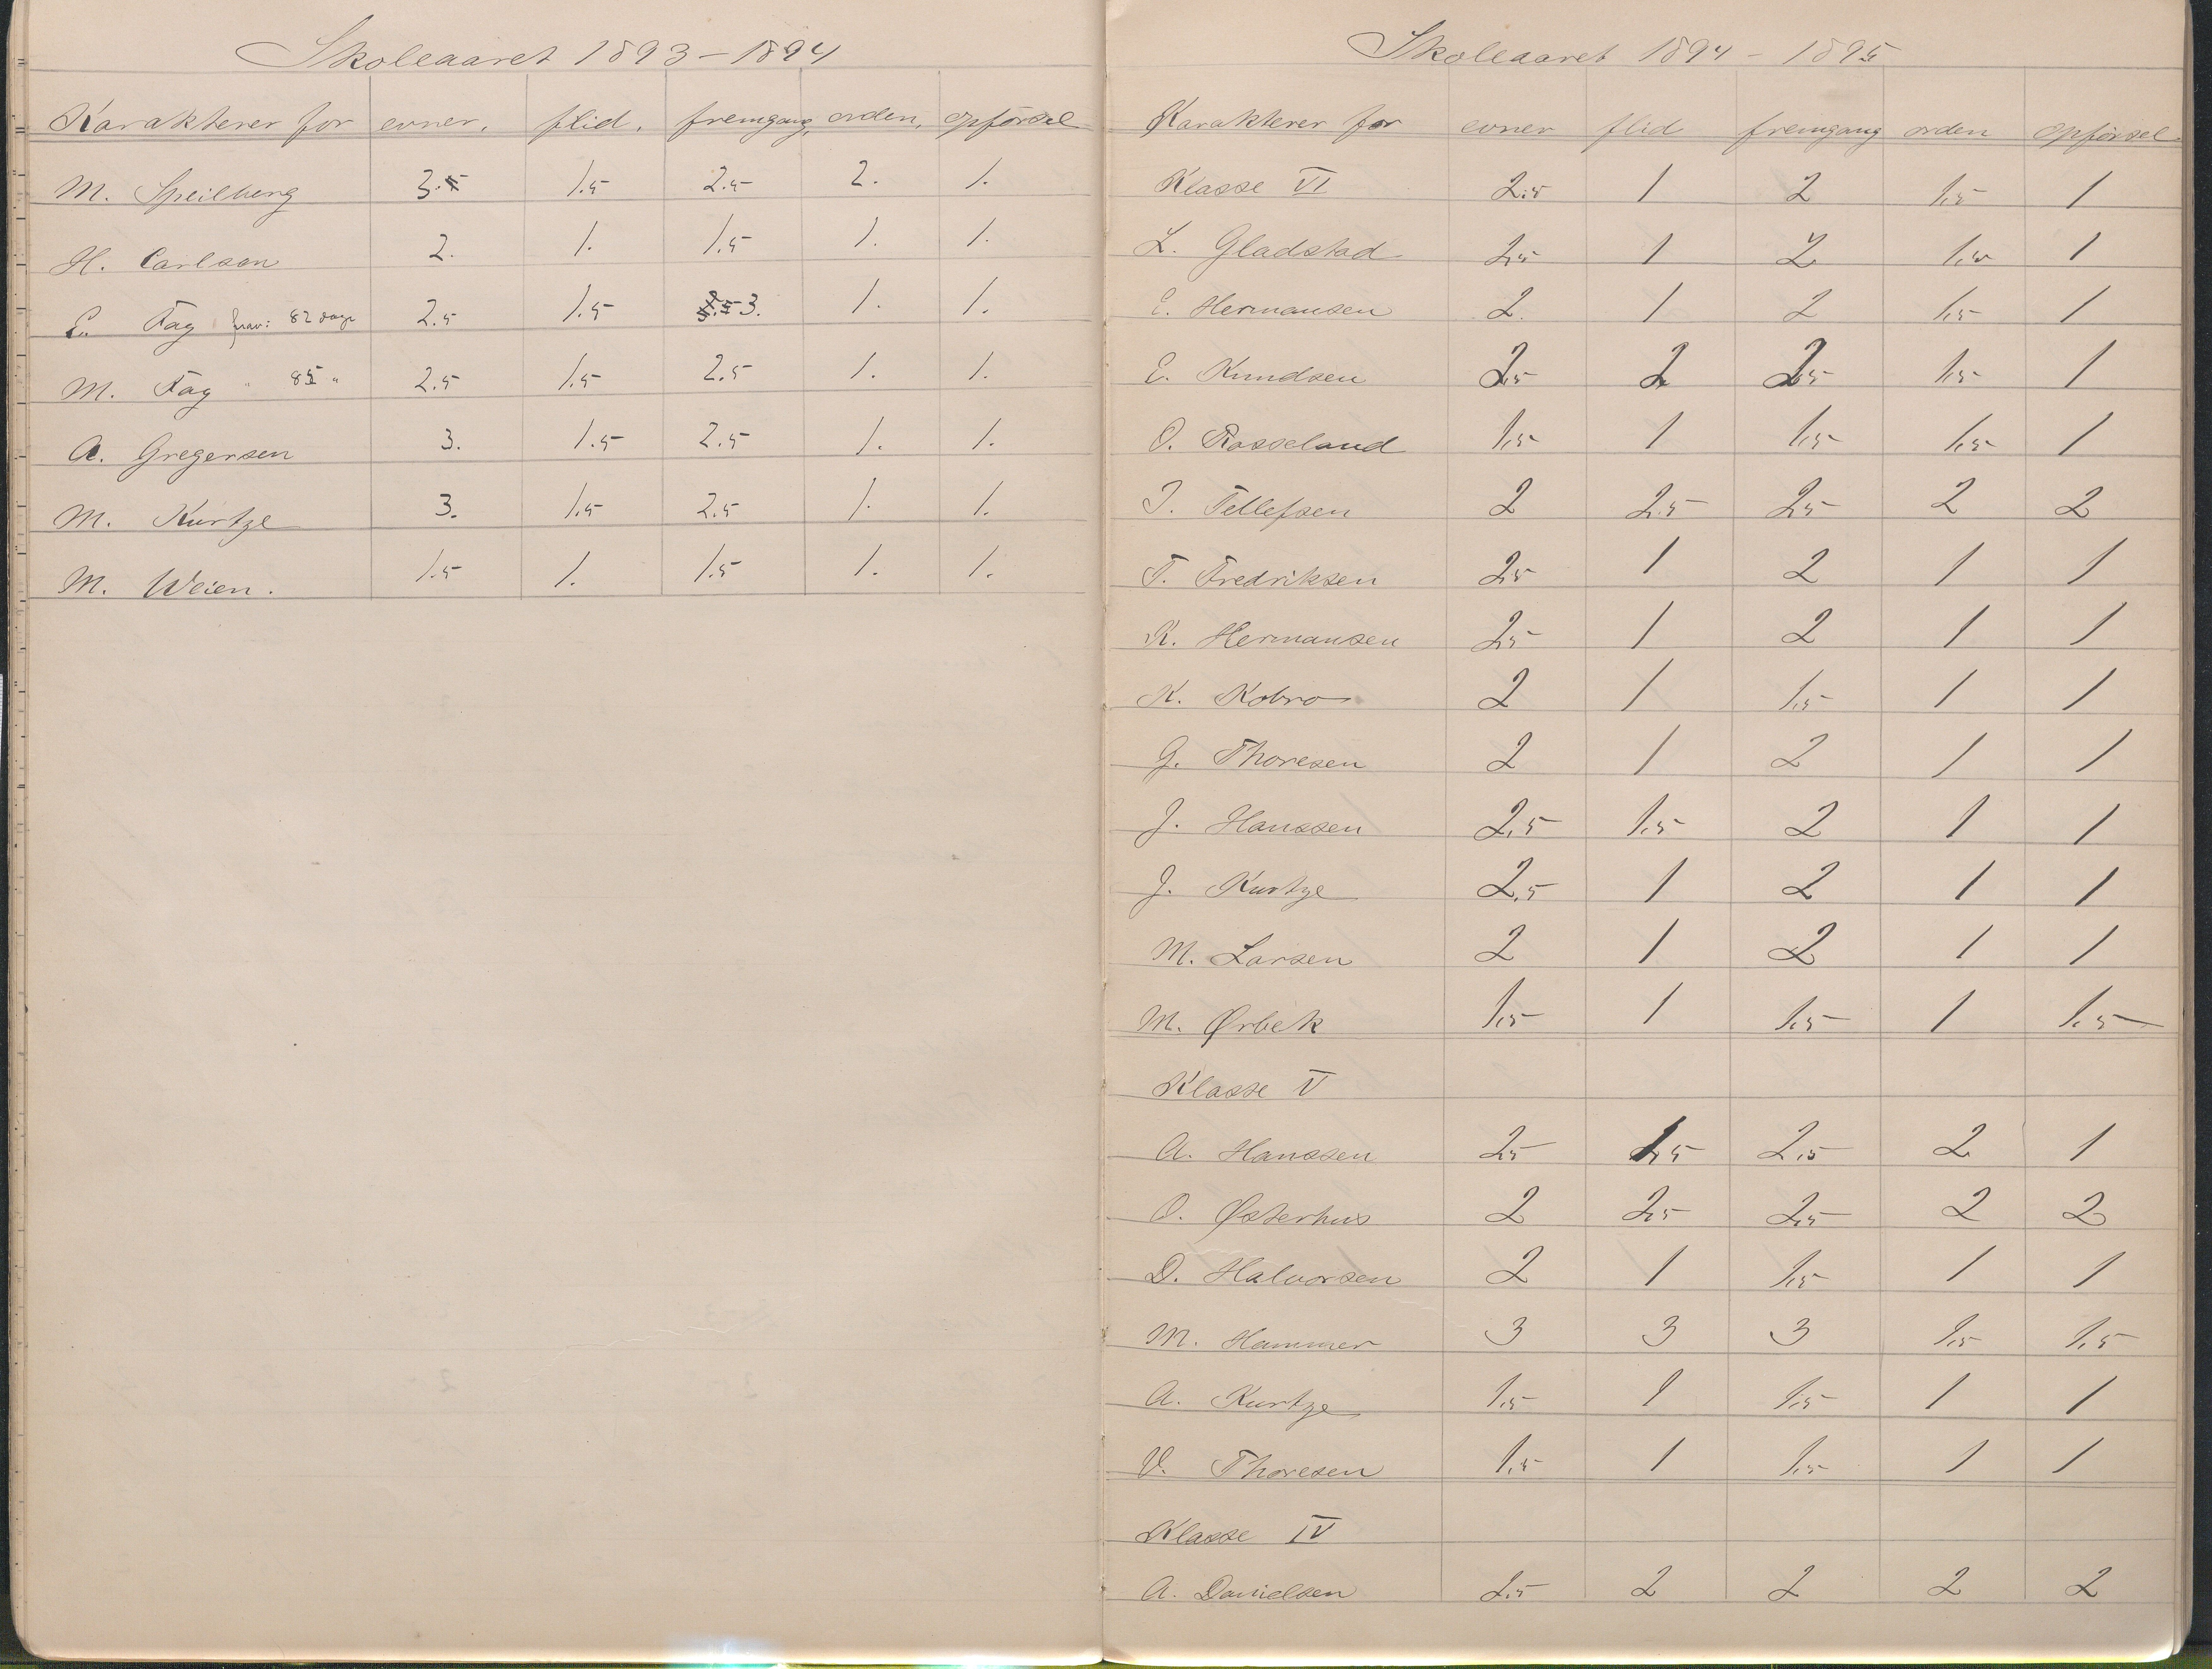 Skoleaaret 1893-1894
Karakterer for evner. flid. fremgang, orden, opførsel
M. Speilberg 3. 1.5 2.5 2. 1.
H. Carlson 2. 1. 1.5 1. 1.
E. Fag frav: 82 dage 2.5 1.5 3. 1. 1.
M. Fag " 85 " 2.5 1.5 2.5 1. 1.
A. Gregersen 3. 1.5 2.5 1. 1.
M. Kurtze 3. 1.5 2.5 1. 1.
M. Weien. 1.5 1. 1.5 1. 1.
Skoleaaret 1894-1895
Karakterer for evner flid fremgang orden opførsel.
Klasse VI 2.5 1 2 1.5 1
L. Gladstad 2.5 1 2 1.5 1
E. Hermansen 2. 1 2 1.5 1
E. Knudsen 2.5 2 2.5 1.5 1
O. Rosseland 1.5 1 1.5 1.5 1
T. Tellefsen 2 2.5 2.5 2 2
T. Fredriksen 2.5 1 2 1 1
K. Hermansen 2.5 1 2 1 1
K. Kobro 2 1 1.5 1 1
G. Thoresen 2 1 2 1 1
J. Hanssen 2.5 1.5 2 1 1
J. Kurtze 2.5 1 2 1 1
M. Larsen 2 1 2 1 1
M. Ørbek 1.5 1 1.5 1 1.5
Klasse V
A. Hanssen 2.5 1.5 2.5 2 1
O. Østerhus 2 2.5 2.5 2 2
D. Halvorsen 2 1 1.5 1 1
M. Hammer 3 3 3 1.5 1.5
A. Kurtze 1.5 1 1.5 1 1
V. Thoresen 1.5 1 1.5 1 1
Klasse IV
A. Danielsen 2.5 2 2 2 2